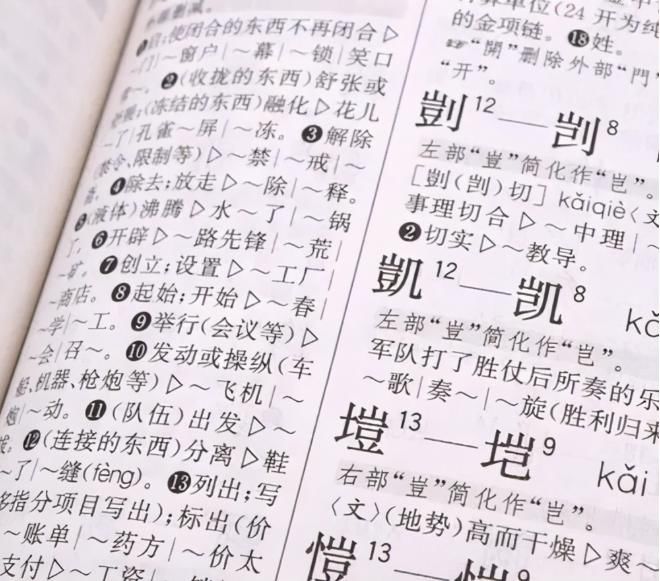 ❶启;使闭合的东西不再闭合▷
~门|~窗户|~幕|~锁|笑口
~。❷(收拢的东西)舒张或
(冻结的东西)融化▷花儿
~了|孔雀~屏|~冻。❸解除
(禁令、限制等)▷~禁|~戒|~
❹除去;放走▷~除|~释。
❺(液体)沸腾▷水~了|~锅
了。❻开辟▷~路先锋|~荒|
~矿。❼创立;设置▷~工厂|
~商店。❽起始;开始▷~春|
~学|~工。❾举行(会议等)▷
~会|召~。❿发动或操纵(车
船、机器、枪炮等)▷~飞机|~
炮|~动。⓫(队伍)出发▷~
拔。⓬(连接的东西)分离▷鞋
~了|~缝(fèng)。⓭列出;写
多指分项目写出);标出(价
~账单|~药方|~价太
支付▷~工资|
单位(24开为纯
的金项链。⓲姓。
☞“開”删除外部“門”
“开”。
剴12——剀8
左部“豈”简化作“岂”。
[剴(剀)切] kǎiqiè〈文
事理切合▷~中理|~
❷切实▷~教导。
凱12——凯8 kǎ
左部“豈”简化作“岂”。
军队打了胜仗后所奏的乐
~歌|奏~|~旋(胜利归来
塏13——垲9 kǎi
右部“豈”简化作“岂”。
〈文〉(地势)高而干燥▷爽~
愷13——恺9